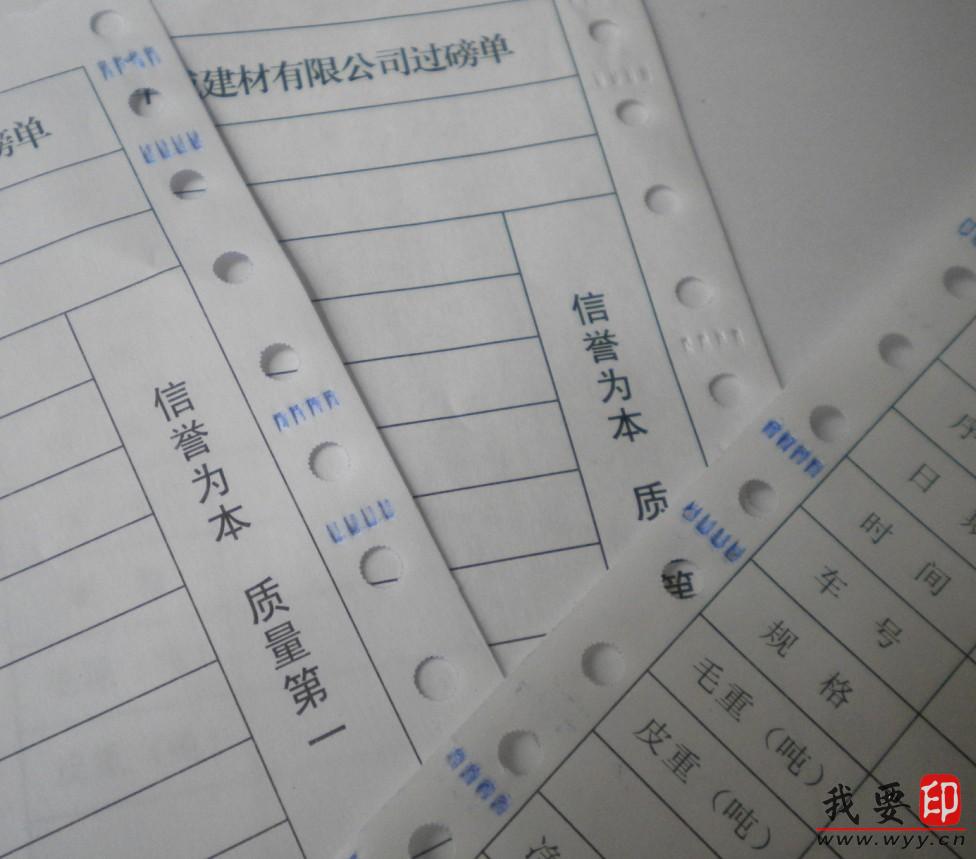 建材有限公司过磅单
磅单
信誉为本 质量第一
信誉为本 质
序
日 期
时 间
车 号
规 格
毛重（吨）
皮重（吨）
净
我要印
www.wyy.cn